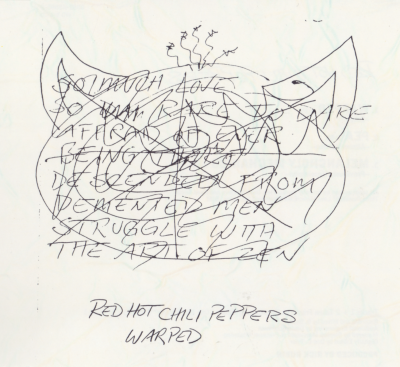 SO MUCH LOVE
SO RARE TO DARE
AFFRAD OF EVER
BEING THERE
DESCENDED FROM
DEMENTED MEN
STRUGGLE WITH
THE ART OF ZEN
RED HOT CHILI PEPPERS
WARPED